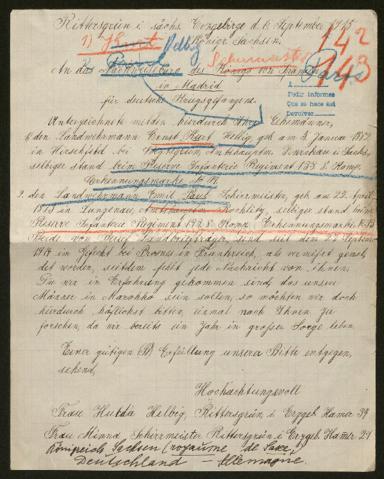 Rittersgrün i. sächs. Erzgebirge d. 6. September 1915
1) Kurt Helbig Königr. Sachsen.
Schirrmeister 142
143
An das Nachweisbüro des Königs von Spanien Paris
in Madrid
für deutsche Kriegsgefangene.
A
Pedir informes
Que se hace así
Devolver
Unterzeichnete melden hierdurch Ihre Ehemänner,
1. den Landwehrmann Ernst Kurt Helbig, geb. am 3. Januar 1882
in Hirschfeld bei Amtshauptm. Zwickau i. Sachs.
selbiger stand beim Reserve Infanterie Regiment 133 Komp.
Erkennungsmarke
2. den Landwehrmann Emil Paul Schirrmeister, geb. am 23. April
in Langenau, Rochlitz, selbiger stand beim
Reserve Infanterie Regiment Komp. Erkennungsmarke
Beide von Ihnen sind seit dem September
1914 im Gefecht bei in Frankreich, als vermißt gemel-
det worden, seitdem fehlt jede Nachricht von ihnen.
Da wir in Erfahrung gekommen sind, das unsere
Männer in Marokko sein sollen, so möchten wir doch
hierdurch höflichst bitten, einmal nach Ihnen zu
forschen, da wir bereits ein Jahr in großer Sorge leben.
Einer gütigen Erfüllung unserer Bitte entgegen,
sehend,
Hochachtungsvoll
Frau Hulda Helbig, Rittersgrün i. Erzgeb. Hamer 39
Frau Minna Schirrmeister Rittersgrün i. Erzgeb. Hamer 24
Königreich Sachsen (royaume de Saxe)
Deutschland – Allemagne